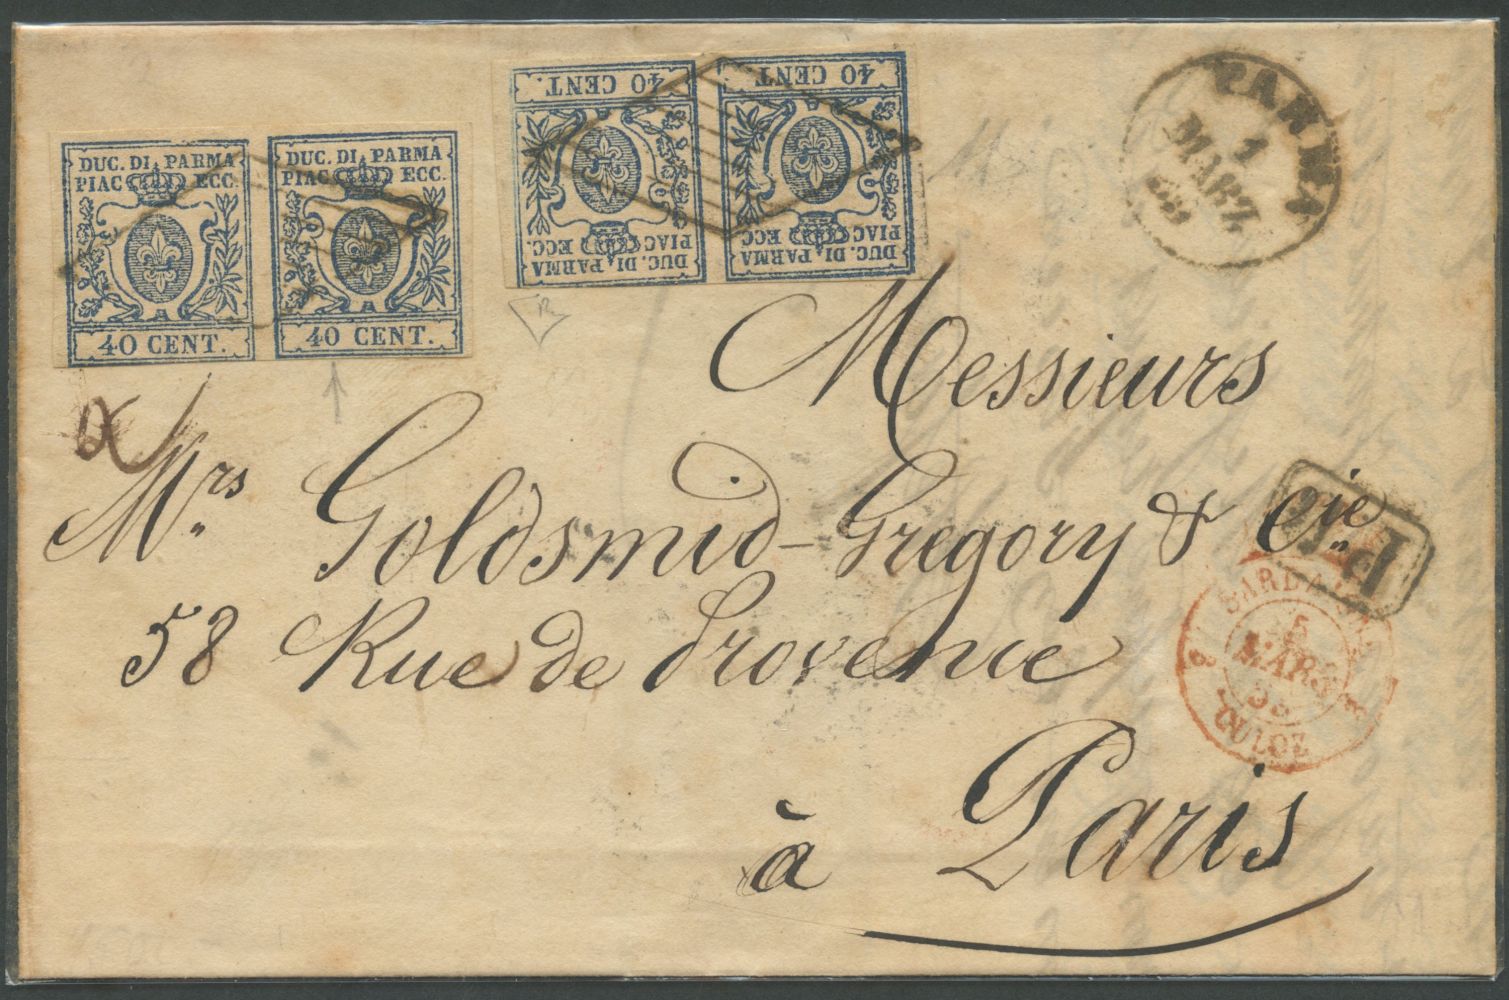 DUC. DI PARMA
PIAC ECC.
40 CENT.
DUC. DI PARMA
PIAC ECC.
40 CENT.
DUC. DI PARMA
PIAC ECC.
40 CENT.
DUC. DI PARMA
PIAC ECC.
40 CENT.
PARMA
1
MARZ
58
Messieurs
Mrs Goldsmid-Gregory & Cie
58 Rue de Provence
à Paris
P.D.
5
MARS
58
CULOZ